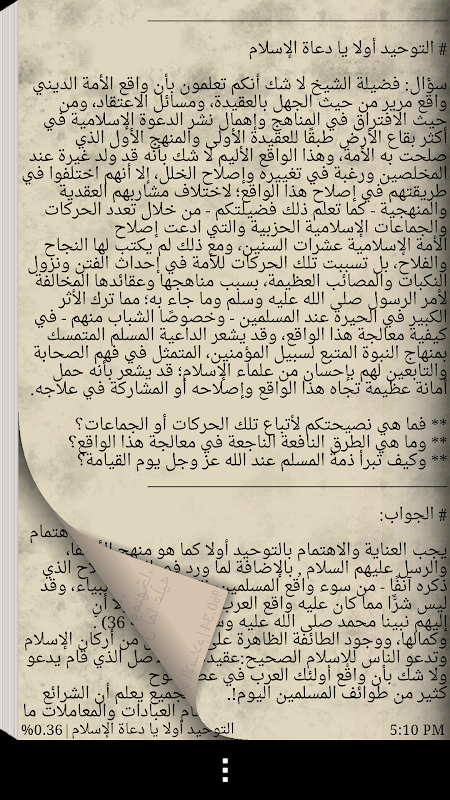 # التوحيد أولا يا دعاة الإسلام
سؤال: فضيلة الشيخ لا شك أنكم تعلمون بأن واقع الأمة الديني
واقع مرير من حيث الجهل بالعقيدة، ومسائل الاعتقاد، ومن
حيث الافتراق في المناهج وإهمال نشر الدعوة الإسلامية في
أكثر بقاع الأرض طبقًا للعقيدة الأولى والمنهج الأول الذي
صلحت به الأمة، وهذا الواقع الأليم لا شك بأنه قد ولد غيرة عند
المخلصين ورغبة في تغييره وإصلاح الخلل، إلا أنهم اختلفوا في
طريقتهم في إصلاح هذا الواقع؛ لاختلاف مشاربهم العقدية
والمنهجية - كما تعلم ذلك فضيلتكم - من خلال تعدد الحركات
والجماعات الإسلامية الحزبية والتي ادعت إصلاح
الأمة الإسلامية عشرات السنين، ومع ذلك لم يكتب لها النجاح
والفلاح، بل تسببت تلك الحركات للأمة في إحداث الفتن ونزول
النكبات والمصائب العظيمة، بسبب مناهجها وعقائدها المخالفة
لأمر الرسول صلى الله عليه وسلم وما جاء به؛ مما ترك الأثر
الكبير في الحيرة عند المسلمين - وخصوصًا الشباب منهم - في
كيفية معالجة هذا الواقع، وقد يشعر الداعية المسلم المتمسك
بمنهاج النبوة المتبع لسبيل المؤمنين، المتمثل في فهم الصحابة
والتابعين لهم بإحسان من علماء الإسلام؛ قد يشعر بأنه حمل
أمانة عظيمة تجاه هذا الواقع وإصلاحه أو المشاركة في علاجه.
** فما هي نصيحتكم لأتباع تلك الحركات أو الجماعات؟
** وما هي الطرق النافعة الناجعة في معالجة هذا الواقع؟
** وكيف تبرأ ذمة المسلم عند الله عز وجل يوم القيامة؟
# الجواب:
يجب العناية والاهتمام بالتوحيد أولا كما هو منهج
والرسل عليهم السلام , بالإضافة لما ورد الذي
ذكره آنفًا - من سوء واقع المسلمين وقد
ليس شرًا مما كان عليه واقع العرب أن
إليهم نبينا محمد صلى الله عليه 36) .
وكمالها، ووجود الطائفة الظاهرة من أركان الإسلام
وتدعو الناس للإسلام الصحيح: الذي قام يدعو
ولا شك بأن واقع أولئك العرب في
كثير من طوائف المسلمين اليوم!. جميع يعلم أن الشرائع
العبادات والمعاملات ما
5:10 PM التوحيد أولا يا دعاة الإسلام | 0.36%